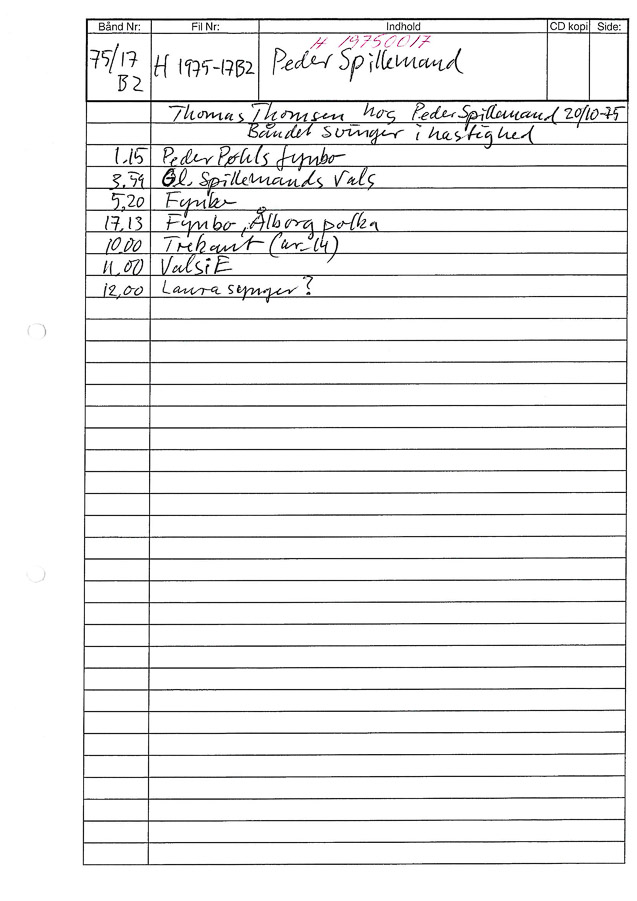 Bånd Nr: Fil Nr: Indhold CD kopi Side:
H 19750017
75/17 B2 H 1975-17B2 Peder Spillemand
Thomas Thomsen hos Peder Spillemand 20/10-75
Båndet svinger i hastighed
1.15 Peder Pøhls fynbo
3.59 Gl. Spillemands Vals
5,20 Fynbo
17.13 Fynbo, Ålborg polka
10.00 Trekant (ur-14)
11,00 Vals i E
12,00 Laura synger?